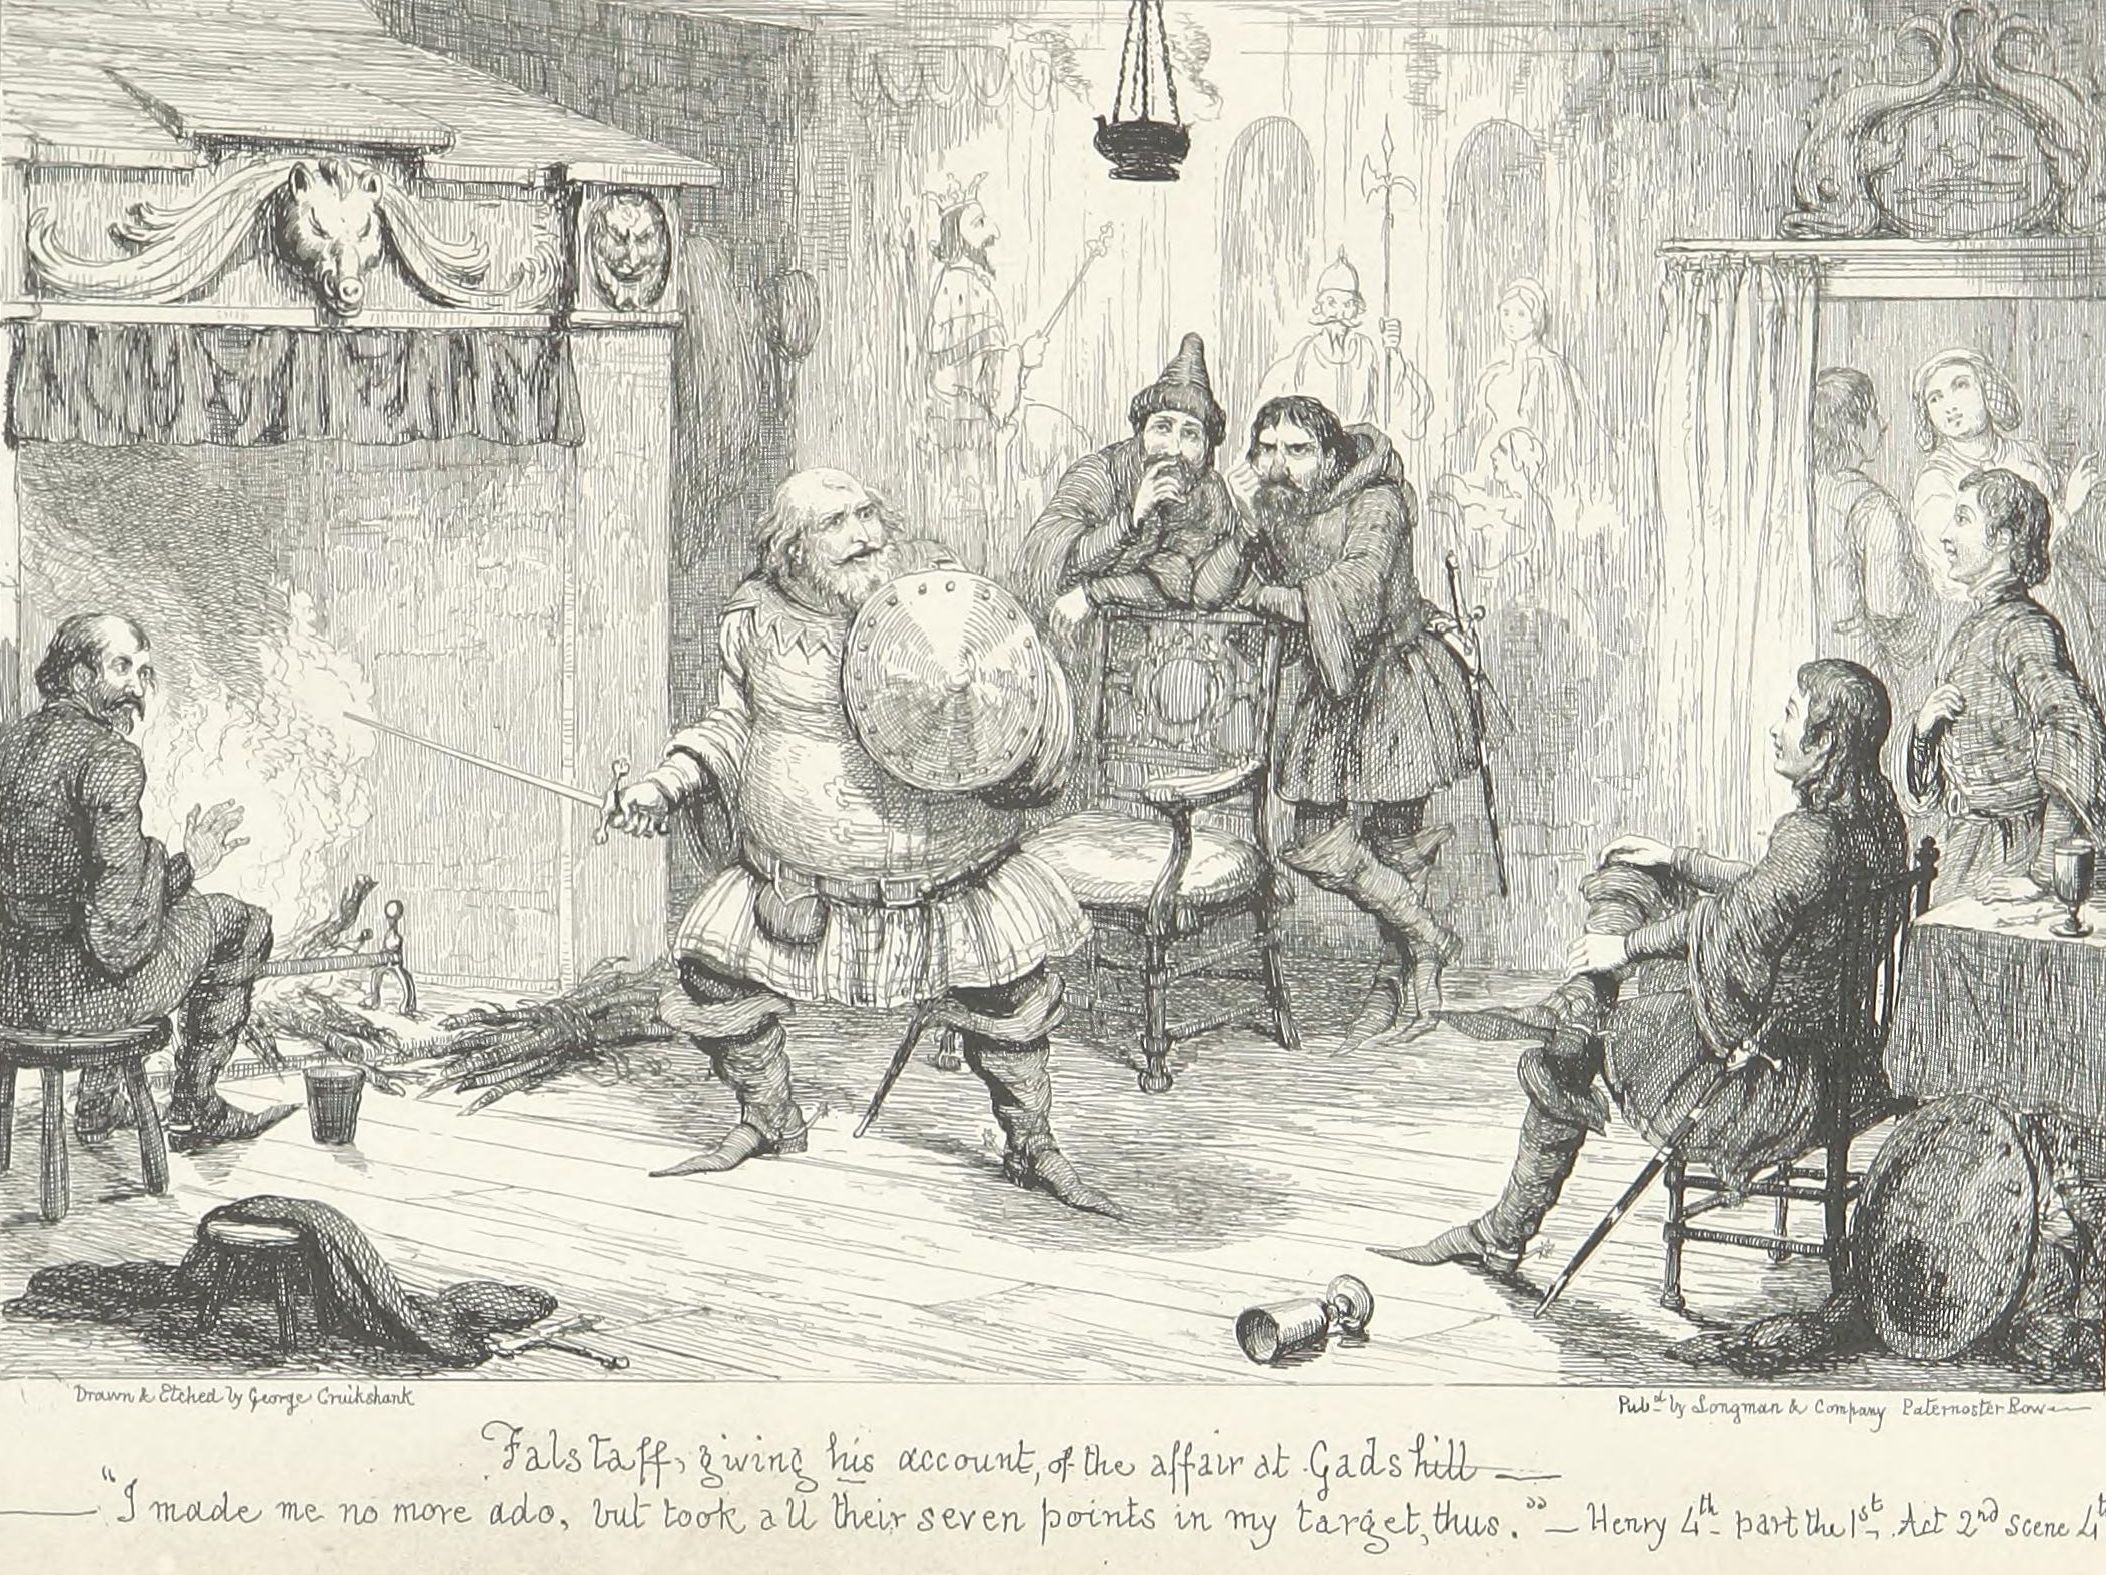 Drawn & Etched by George Cruikshank
Pubd by Longman & Company Paternoster Row
Falstaff, giving his account, of the affair at Gadshill —
— "I made me no more ado, but took all their seven points in my target, thus." — Henry 4th part the 1st. Act 2nd scene 4t